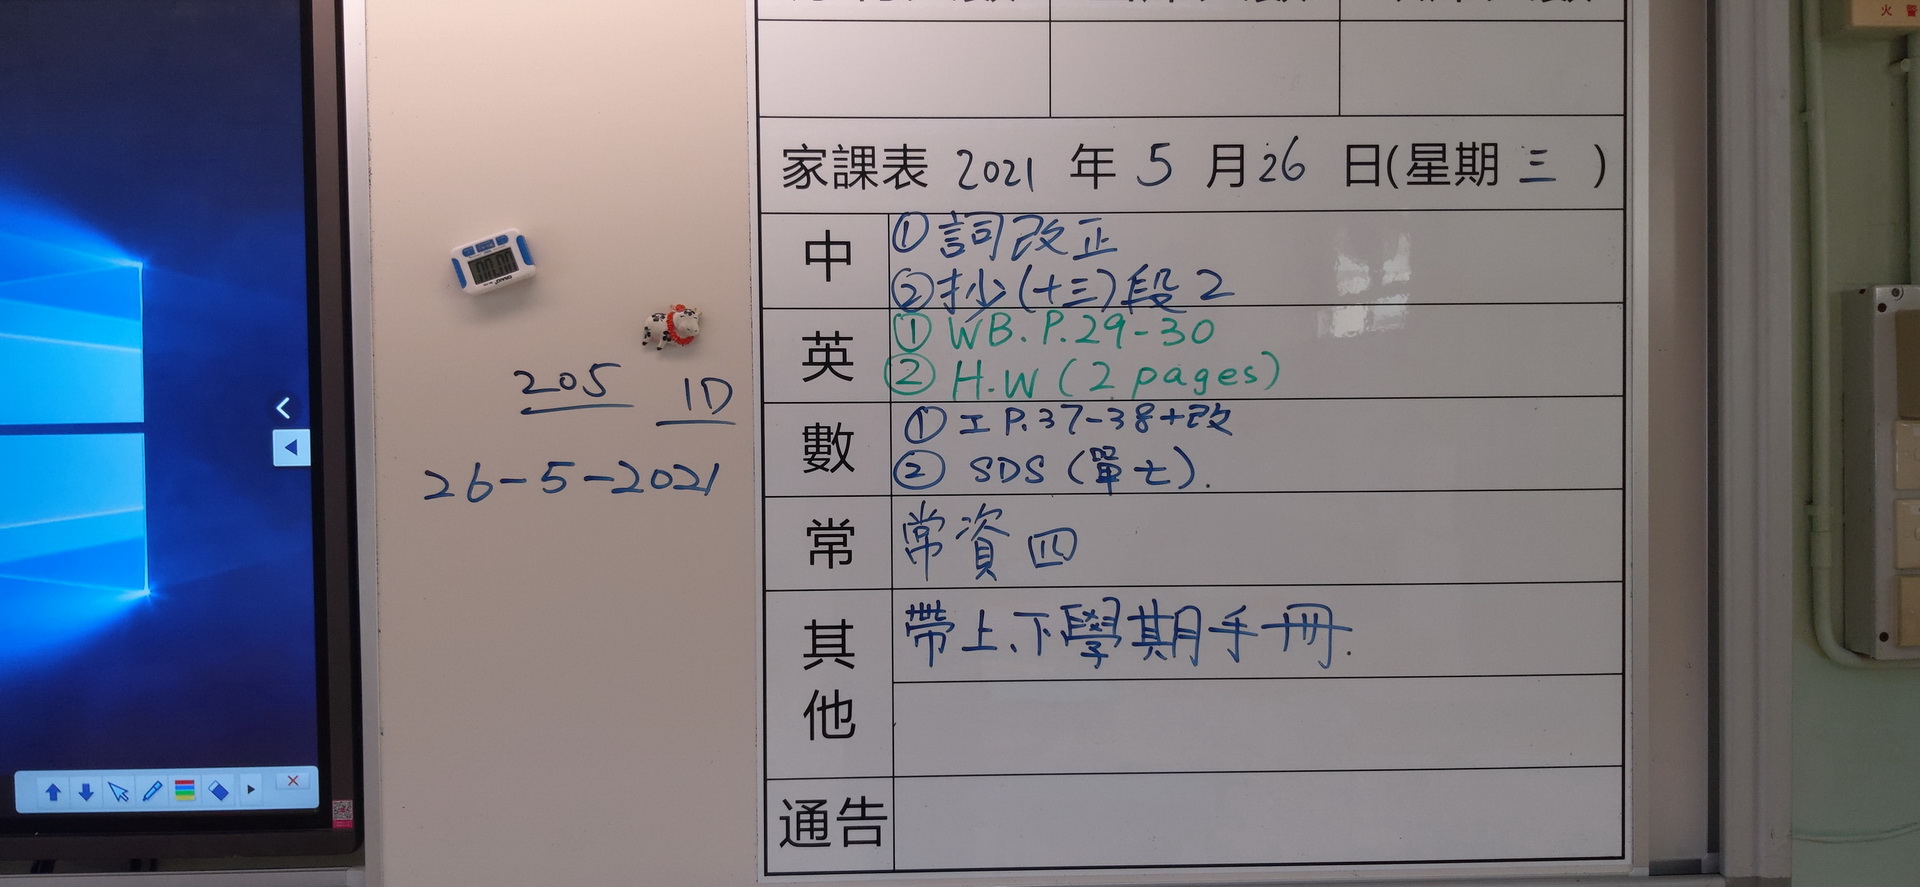 家課表 2021 年 5 月 26 日(星期 三 )
中
①詞改正
②抄(十三)段2
英
① WB.P.29-30
② H.W (2 pages)
數
① 工 P.37-38+改
② SDS (單七).
常
常資四
其他
帶上、下學期手冊.
通告
205 1D
26-5-2021
00:00
火警